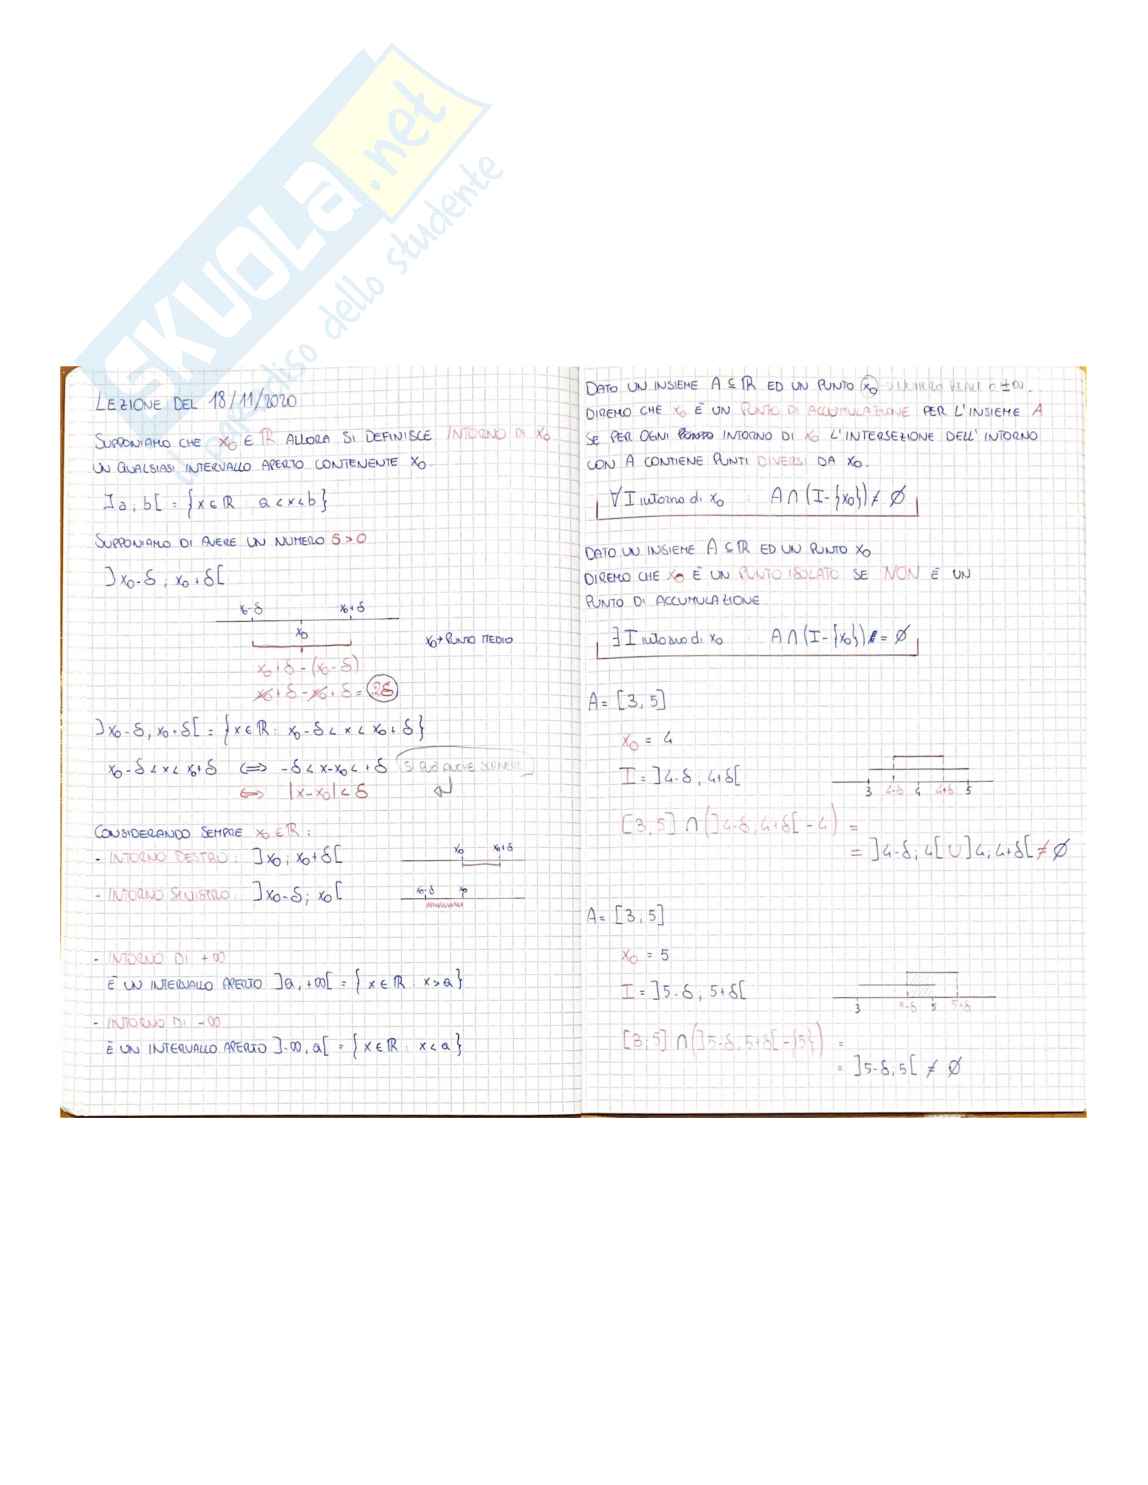 SKUOLA.net
paradiso dello studente
LEZIONE DEL 18/11/2020
SUPPONIAMO CHE x₀ ∈ ℝ ALLORA SI DEFINISCE INTORNO DI x₀
UN QUALSIASI INTERVALLO APERTO CONTENENTE x₀.
]a, b[ = {x ∈ ℝ a < x < b}
SUPPONIAMO DI AVERE UN NUMERO δ > 0
]x₀-δ, x₀+δ[
x₀-δ x₀+δ
x₀
x₀ + PUNTO MEDIO
x₀+δ-(x₀-δ)
x₀+δ-x₀+δ = 2δ
]x₀-δ, x₀+δ[ = {x ∈ ℝ: x₀-δ < x < x₀+δ}
x₀-δ < x < x₀+δ ⟺ -δ < x-x₀ < +δ SI PUÒ ANCHE
⟺ |x-x₀| < δ
CONSIDERANDO SEMPRE x₀ ∈ ℝ:
- INTORNO DESTRO: ]x₀; x₀+δ[
x₀ x₀+δ
- INTORNO SINISTRO: ]x₀-δ; x₀[
x₀-δ x₀
- INTORNO DI +∞
È UN INTERVALLO APERTO ]a, +∞[ = {x ∈ ℝ: x > a}
- INTORNO DI -∞
È UN INTERVALLO APERTO ]-∞, a[ = {x ∈ ℝ: x < a}
DATO UN INSIEME A ⊆ ℝ ED UN PUNTO x₀ O ±∞.
DIREMO CHE x₀ È UN PUNTO DI ACCUMULAZIONE PER L'INSIEME A
SE PER OGNI INTORNO DI x₀ L'INTERSEZIONE DELL'INTORNO
CON A CONTIENE PUNTI DIVERSI DA x₀.
∀ I intorno di x₀ A ∩ (I-{x₀}) ≠ ∅
DATO UN INSIEME A ⊆ ℝ ED UN PUNTO x₀
DIREMO CHE x₀ È UN PUNTO ISOLATO SE NON È UN
PUNTO DI ACCUMULAZIONE
∃ I intorno di x₀ A ∩ (I-{x₀}) = ∅
A = [3, 5]
x₀ = 4
I = ]4-δ, 4+δ[
3 4-δ 4 4+δ 5
[3, 5] ∩ (]4-δ, 4+δ[ - 4) =
= ]4-δ, 4[ ∪ ]4, 4+δ[ ≠ ∅
A = [3, 5]
x₀ = 5
I = ]5-δ, 5+δ[
3 5-δ 5 5+δ
[3; 5] ∩ (]5-δ, 5+δ[ - {5}) =
= ]5-δ, 5[ ≠ ∅